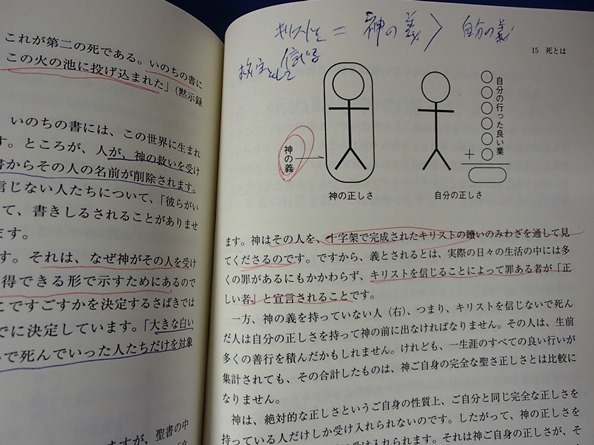 これが第二の死である。いのちの書に
この火の池に投げ込まれた」(黙示録
いのちの書には、この世界に生まれ
す。ところが、人が、神の救いを受け
書からその人の名前が削除されます。
信じない人たちについて、「彼らがい
て、書きしるされることがありませ
ます。
す。それは、なぜ神がその人を受け
得できる形で示すためにあるので
こですごすかを決定するさばきでは
でに決定しています。「大きな白い
で死んでいった人たちだけを対象
聖書の中
キリストを = 神の義 > 自分の義
信じる
15 死とは
神の義
神の正しさ
自分の行った良い業
+
自分の正しさ
ます。神はその人を、十字架で完成されたキリストの贖いのみわざを通して見
てくださるのです。ですから、義とされるとは、実際の日々の生活の中には多
くの罪があるにもかかわらず、キリストを信じることによって罪ある者が「正
しい者」と宣言されることです。
一方、神の義を持っていない人(右)、つまり、キリストを信じないで死ん
だ人は自分の正しさを持って神の前に出なければなりません。その人は、生前
多くの善行を積んだかもしれません。けれども、一生涯のすべての良い行いが
集計されても、その合計したものは、神ご自身の完全な聖さ正しさとは比較に
なりません。
神は、絶対的な正しさというご自身の性質上、ご自分と同じ完全な正しさを
持っている人だけしか受け入れられないのです。したがって、神の正しさを